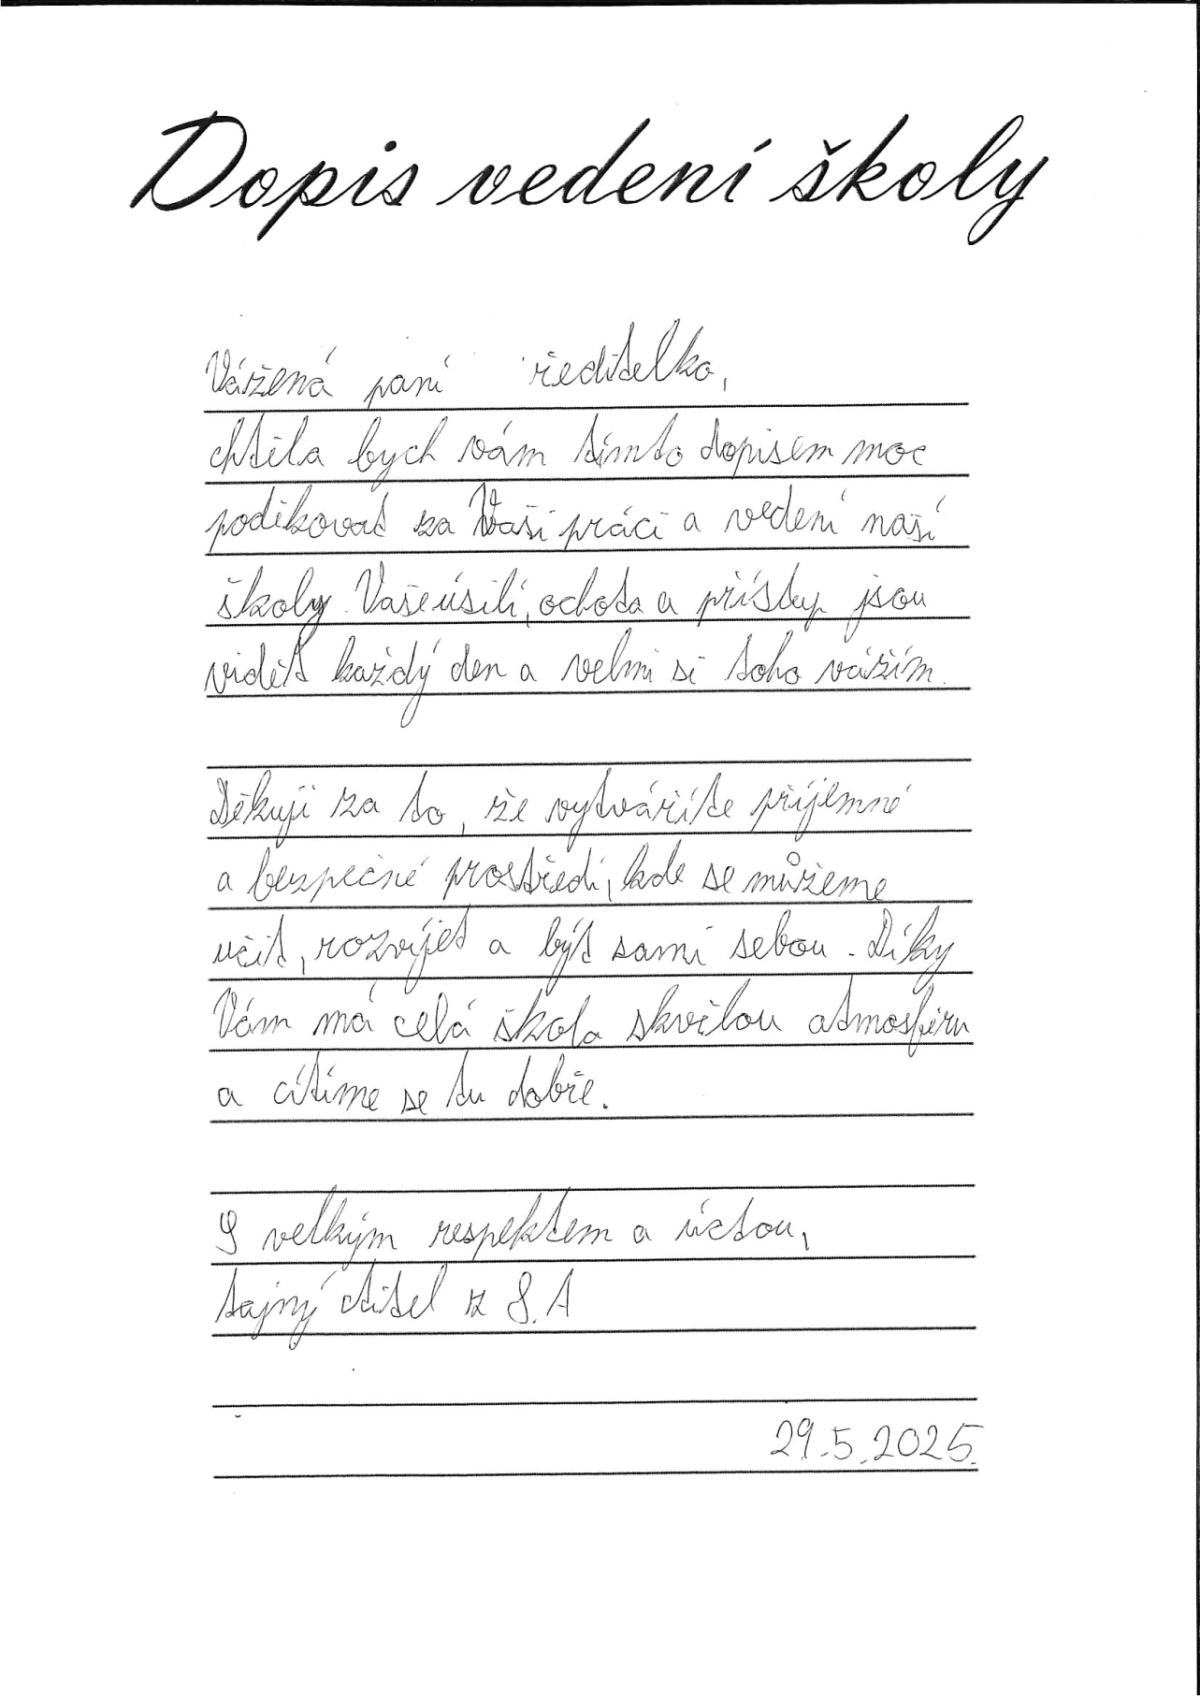 Dopis vedení školy
Vážená paní ředitelko,
chtěla bych vám tímto dopisem moc
poděkovat za Vaši práci a vedení naší
školy. Vaše úsilí, ochota a přístup jsou
vidět každý den a velmi si toho vážím.
Děkuji za to, že vytváříte příjemné
a bezpečné prostředí, kde se můžeme
učit, rozvíjet a být sami sebou. Díky
Vám má celá škola skvělou atmosféru
a cítíme se tu dobře.
S velkým respektem a úctou,
tajný ctitel z 8.A
29.5.2025.